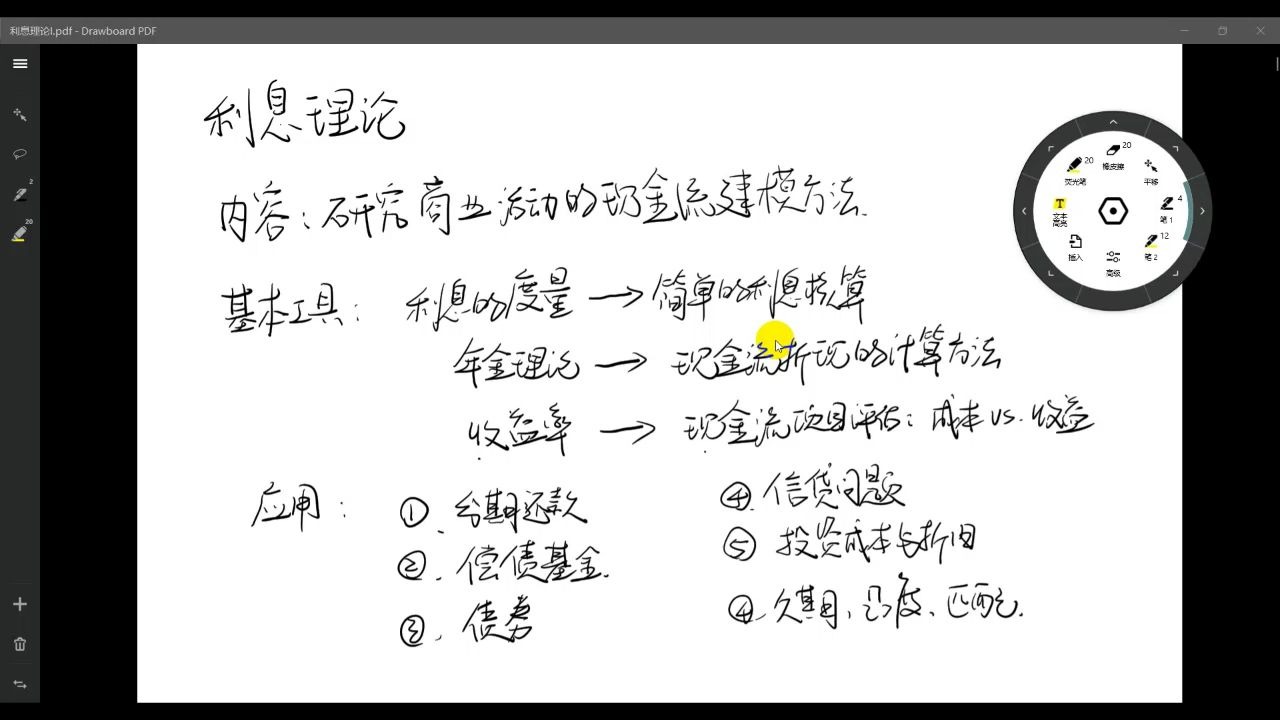 利息理论I.pdf - Drawboard PDF
利息理论
内容：研究商业活动的现金流建模方法.
基本工具： 利息的度量 → 简单的利息核算
年金理论 → 现金流折现的计算方法
收益率 → 现金流项目评估：成本 vs. 收益
应用： ①. 分期还款
②. 偿债基金.
③. 债券
④. 信贷问题
⑤ 投资成本与折旧
④. 久期、凸度、匹配.
20
橡皮擦
20
荧光笔
平移
T
文本高亮
4
笔 1
插入
12
笔 2
高级
2
20